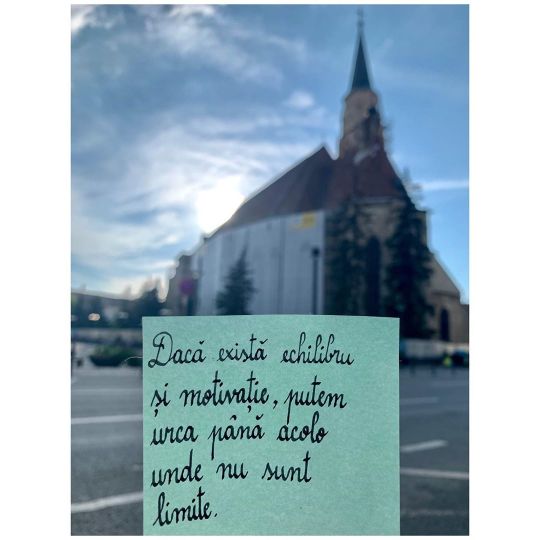 Dacă există echilibru
și motivație, putem
urca până acolo
unde nu sunt
limite.